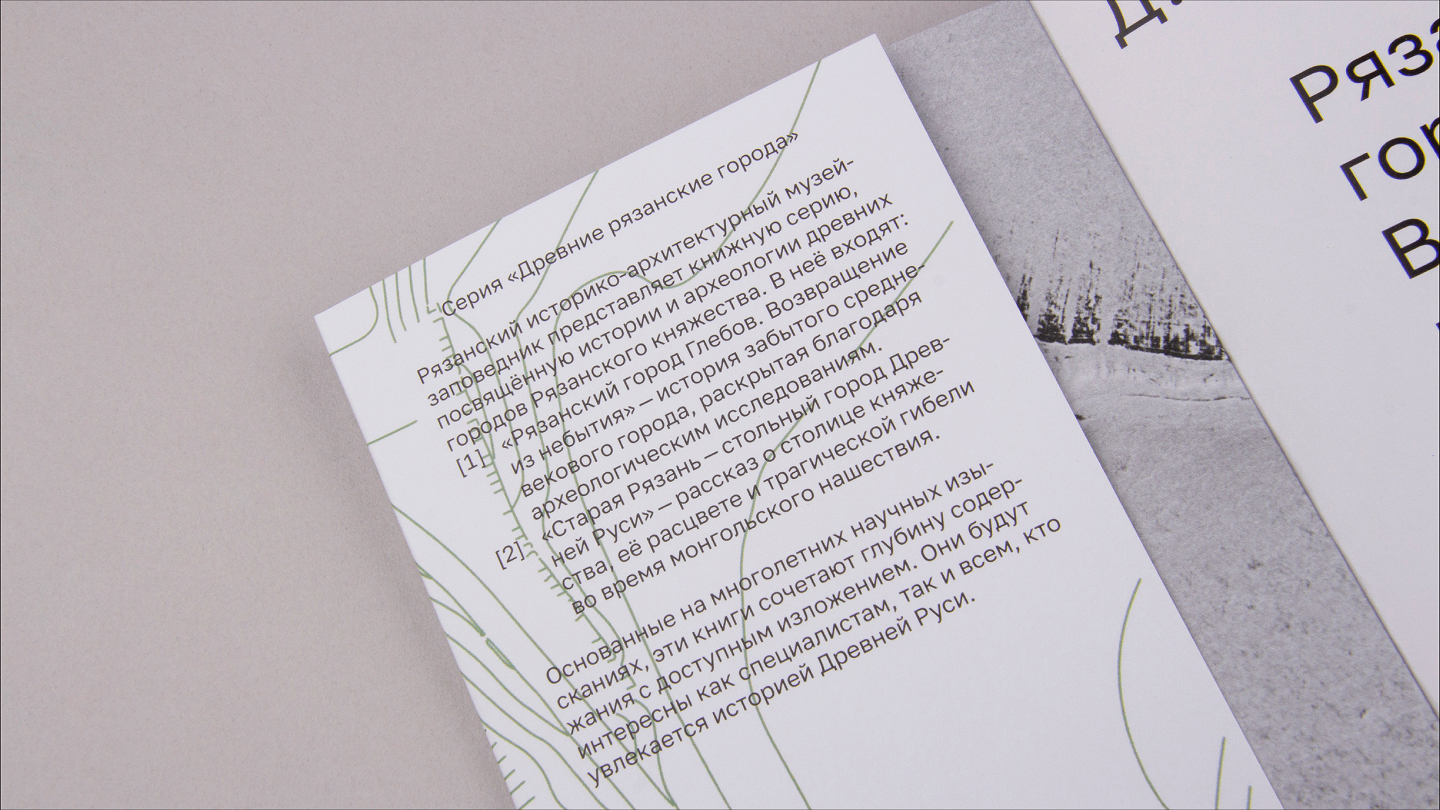 Серия «Древние рязанские города»
Рязанский историко-архитектурный музей-
заповедник представляет книжную серию,
посвящённую истории и археологии древних
городов Рязанского княжества. В неё входят:
[1] «Рязанский город Глебов. Возвращение
из небытия» — история забытого средне-
векового города, раскрытая благодаря
археологическим исследованиям.
[2] «Старая Рязань — стольный город Древ-
ней Руси» — рассказ о столице княже-
ства, её расцвете и трагической гибели
во время монгольского нашествия.
Основанные на многолетних научных изы-
сканиях, эти книги сочетают глубину содер-
жания с доступным изложением. Они будут
интересны как специалистам, так и всем, кто
увлекается историей Древней Руси.
Д.
Ряза
гор
В